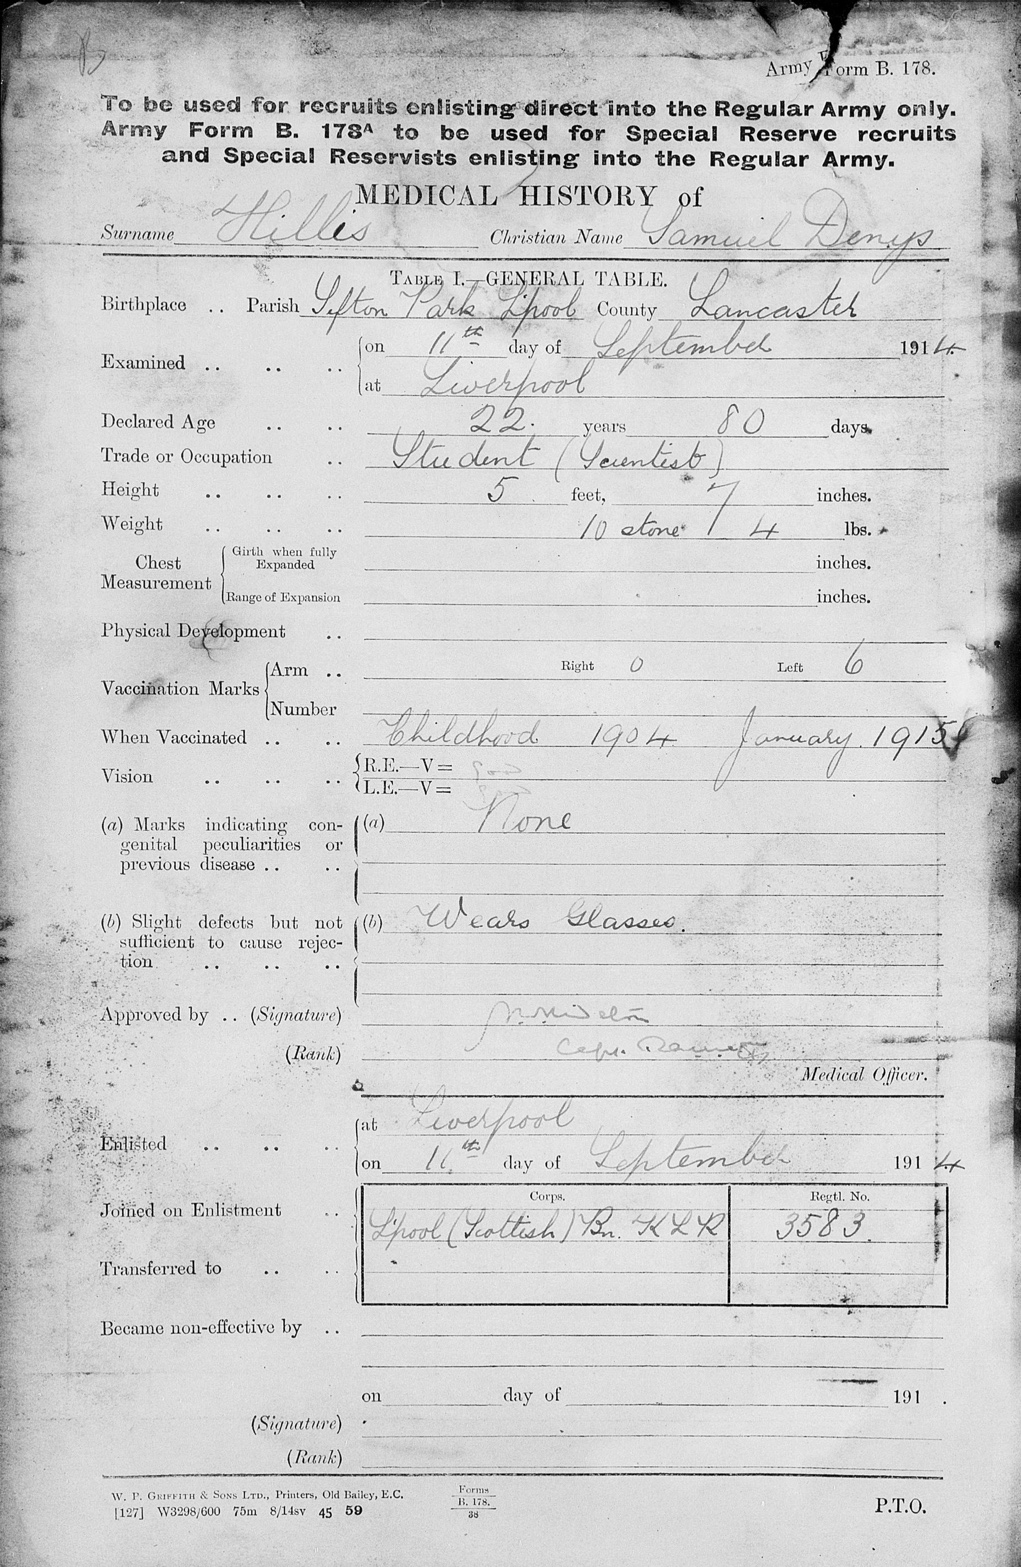 Army Form B. 178.
To be used for recruits enlisting direct into the Regular Army only.
Army Form B. 178A to be used for Special Reserve recruits
and Special Reservists enlisting into the Regular Army.
MEDICAL HISTORY of
Surname Hillis Christian Name Samuel Denys
TABLE I.—GENERAL TABLE.
Birthplace .. Parish Sefton Park L'pool County Lancaster
Examined .. .. .. on 11th day of September 1914
at Liverpool
Declared Age .. .. 22 years 80 days.
Trade or Occupation .. Student (Scientist)
Height .. .. .. 5 feet, 7 inches.
Weight .. .. .. 10 stone 4 lbs.
Chest Measurement Girth when fully Expanded inches.
Range of Expansion inches.
Physical Development ..
Vaccination Marks Arm .. Right 0 Left 6
Number
When Vaccinated .. .. Childhood 1904 January. 1915
Vision .. .. .. R.E.—V= good
L.E.—V= good
(a) Marks indicating con- (a) None
genital peculiarities or
previous disease .. ..
(b) Slight defects but not (b) Wears Glasses.
sufficient to cause rejec-
tion .. .. ..
Approved by .. (Signature)
(Rank) Capt.
Medical Officer.
Enlisted .. .. .. at Liverpool
on 11th day of September 1914
Corps. Regtl. No.
Joined on Enlistment .. L'pool (Scottish) Bn. K L R 3583.
Transferred to .. ..
Became non-effective by ..
on day of 191 .
(Signature)
(Rank)
W. P. GRIFFITH & SONS LTD., Printers, Old Bailey, E.C.
[127] W3298/600 75m 8/14sv 45 59
Forms
B. 178.
38
P.T.O.